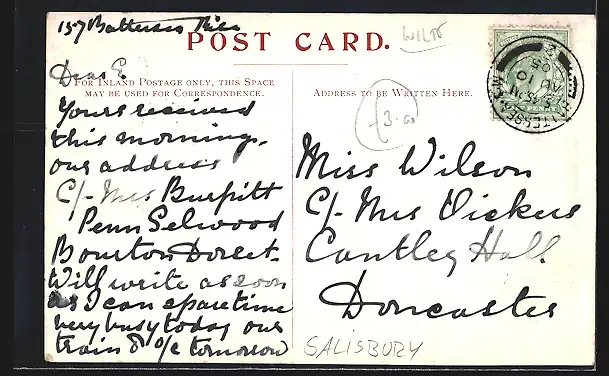 157 Battersea Rise
POST CARD.
WILTS
Dear E
FOR INLAND POSTAGE ONLY, THIS SPACE
MAY BE USED FOR CORRESPONDENCE.
ADDRESS TO BE WRITTEN HERE.
Yours received
this morning.
our address
C/- Mrs Burpitt
Penn Selwood
Bourton Dorset.
Will write as soon
as I can spare time
very busy today our
train 8 o/c tomorrow
3.00
Miss Wilson
C/- Mrs Vickers
Cantley Hall
Doncaster
SALISBURY
BATTERSEA